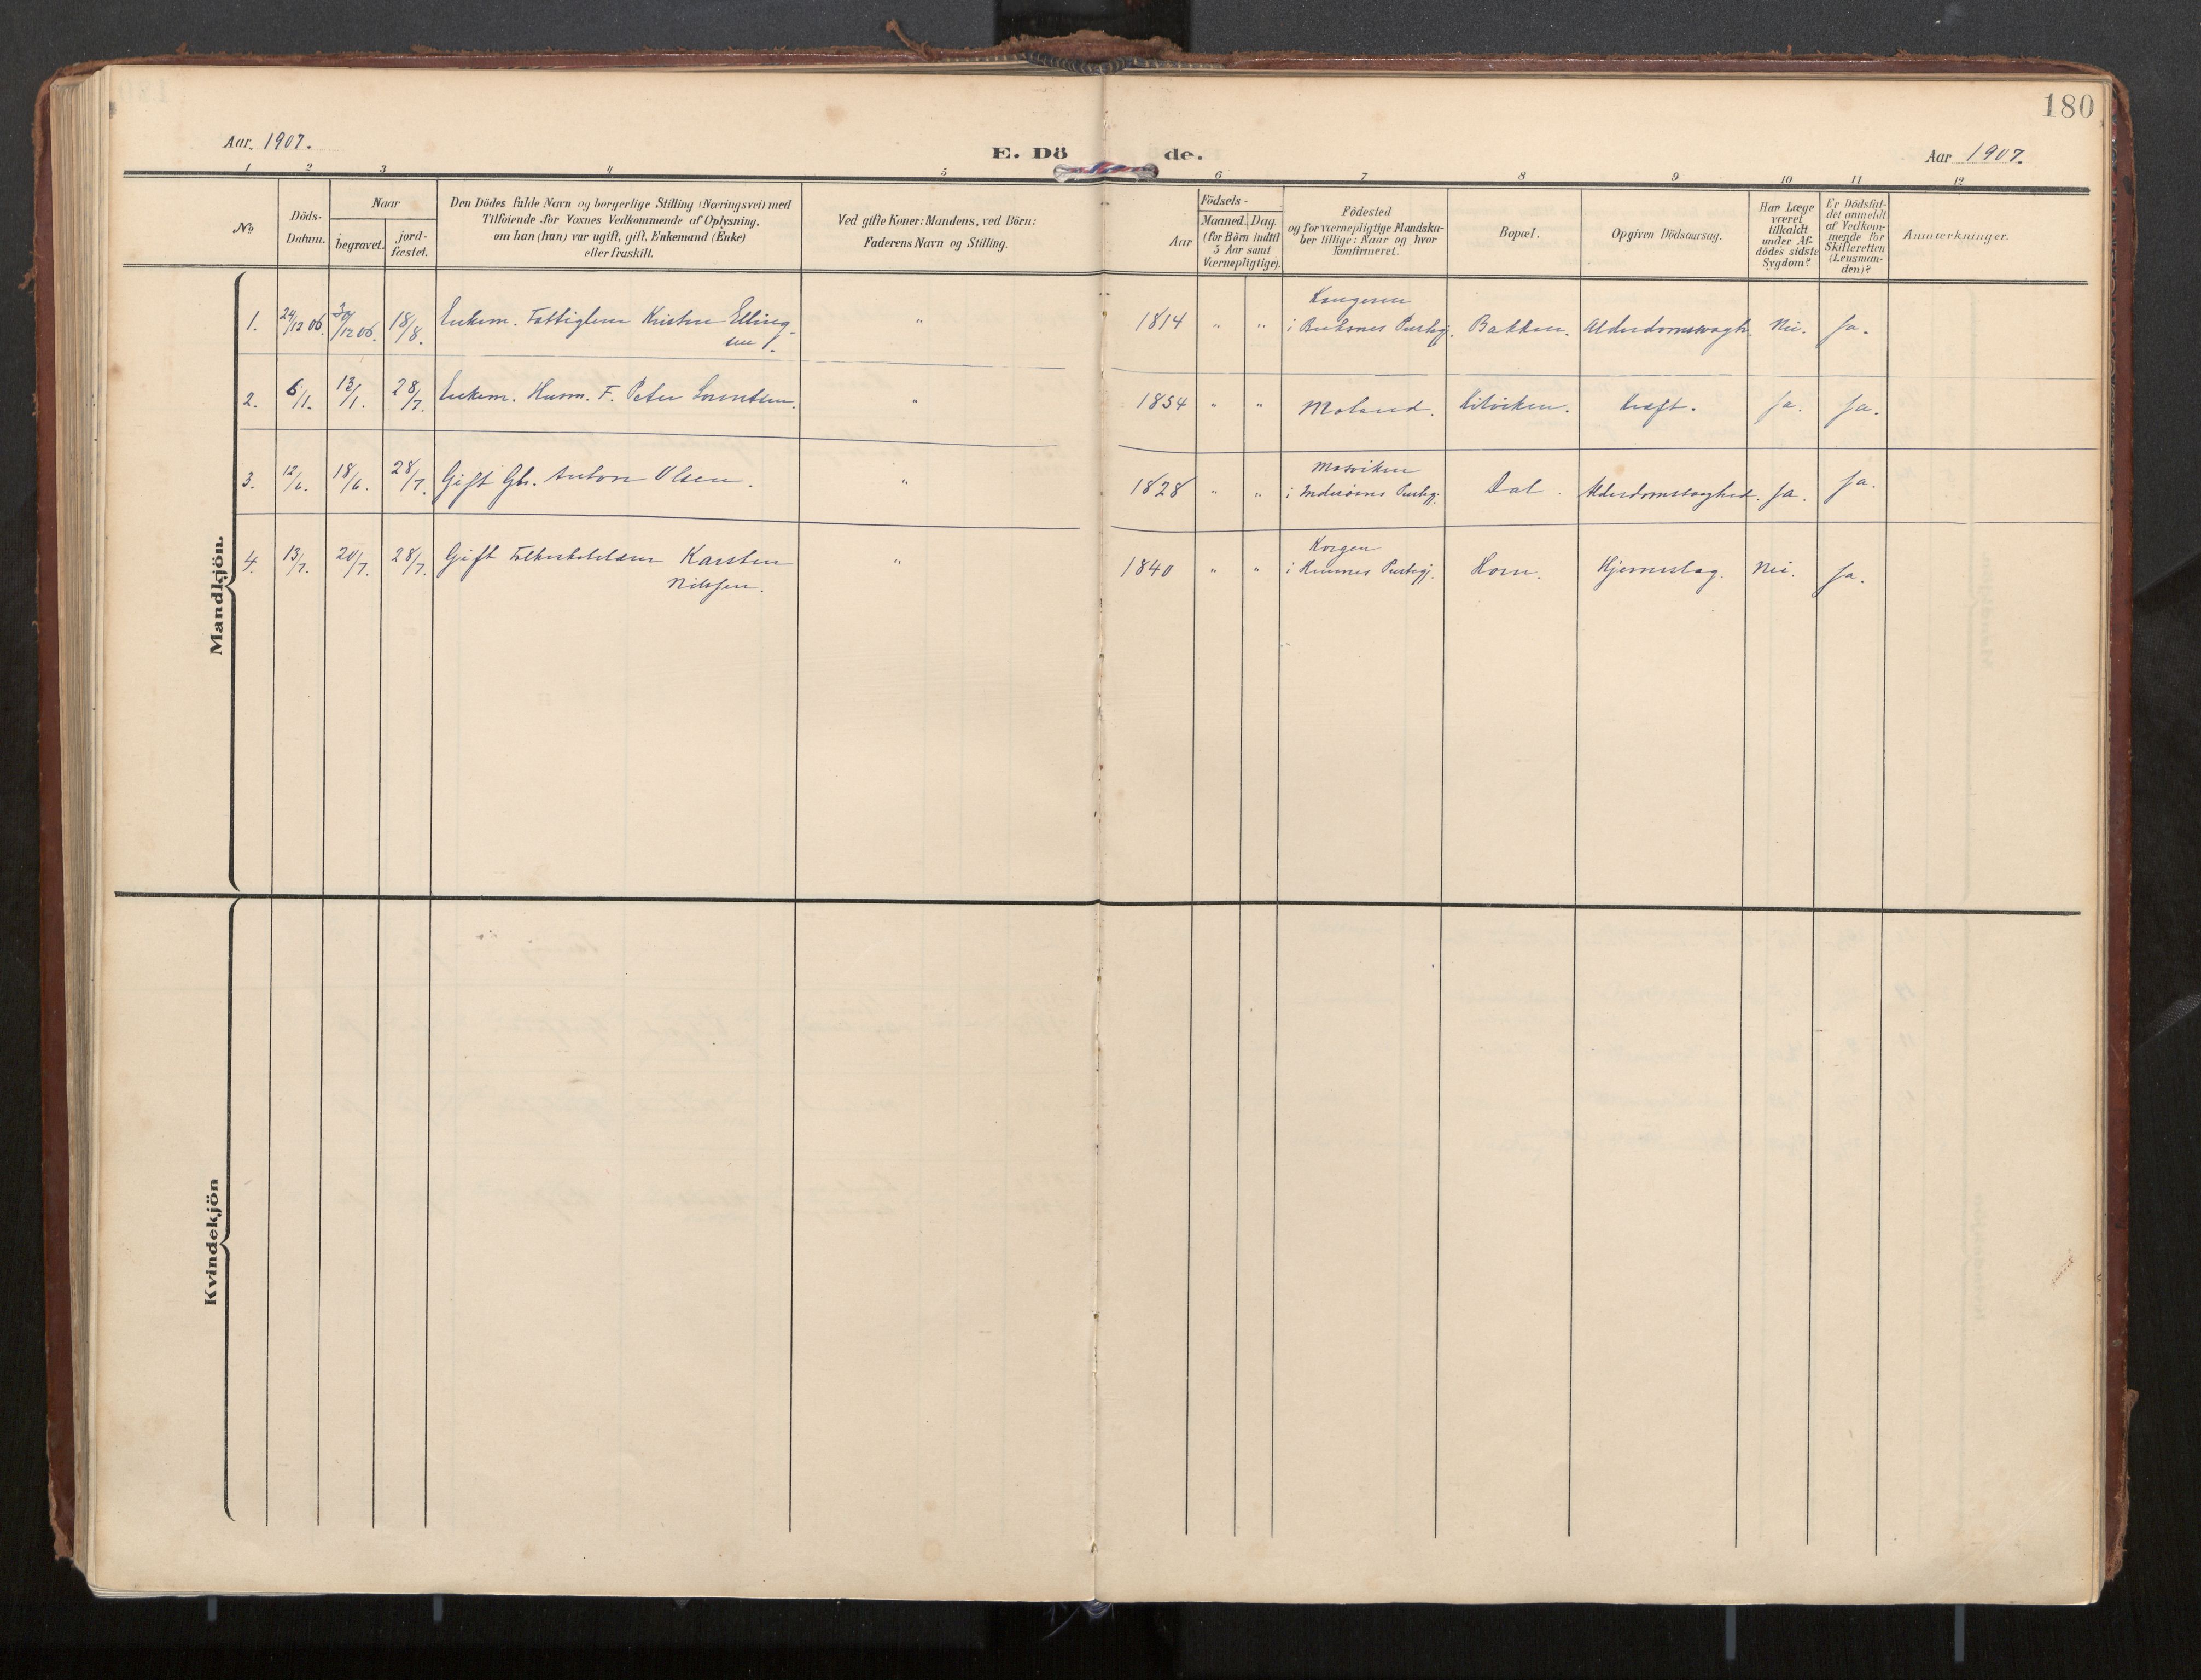 180
Aar 1907.
E. Dö de.
Aar 1907.
1 2 3 4 5 6 7 8 9 10 11 12
No.
Döds-
Datum.
Naar
begravet.
jord-
fæstet.
Den Dödes fulde Navn og borgerlige Stilling (Næringsvei) med
Tilföiende for Voxnes Vedkommende af Oplysning,
om han (hun) var ugift, gift, Enkemand (Enke)
eller fraskilt.
Ved gifte Koner: Mandens, ved Börn:
Faderens Navn og Stilling.
Födsels-
Aar
Maaned. Dag.
(for Börn indtil
5 Aar samt
Værnepligtige).
Födested
og for værnepligtige Mandska-
ber tillige: Naar og hvor
konfirmeret.
Bopæl.
Opgiven Dödsaarsag.
Har Læge
været
tilkaldt
under Af-
dödes sidste
Sygdom?
Er Dödsfal-
det anmeldt
af Vedkom-
mende for
Skifteretten
(Lensman-
den)?
Anmærkninger.
Mandkjön.
1. 24/12 06. 30/12 06. 18/8. Enkem. Fattiglem Kristen Elling-
sen. " 1814 " " i Buksnes Prestegj. Bakken. Alderdomssvagh. Nei. Ja.
2. 6/1. 13/1. 28/7. Enkem. Husm. F. Peter Lorntsen. " 1854 " " Moland. Kræft. Ja. Ja.
3. 12/6. 18/6. 28/7. Gift Gbr. Anton Olsen. " 1828 " "
Mosviken
i Inderöens Prestegj. Dal. Alderdomssvaghed. Ja. Ja.
4. 13/7. 20/7. 28/7. Gift Folkeskolelærer Karsten
Nilssen. " 1840 " "
Korgen
i Hemnes Prestegj. Horn. Hjerneslag. Nei. Ja.
Kvindekjön